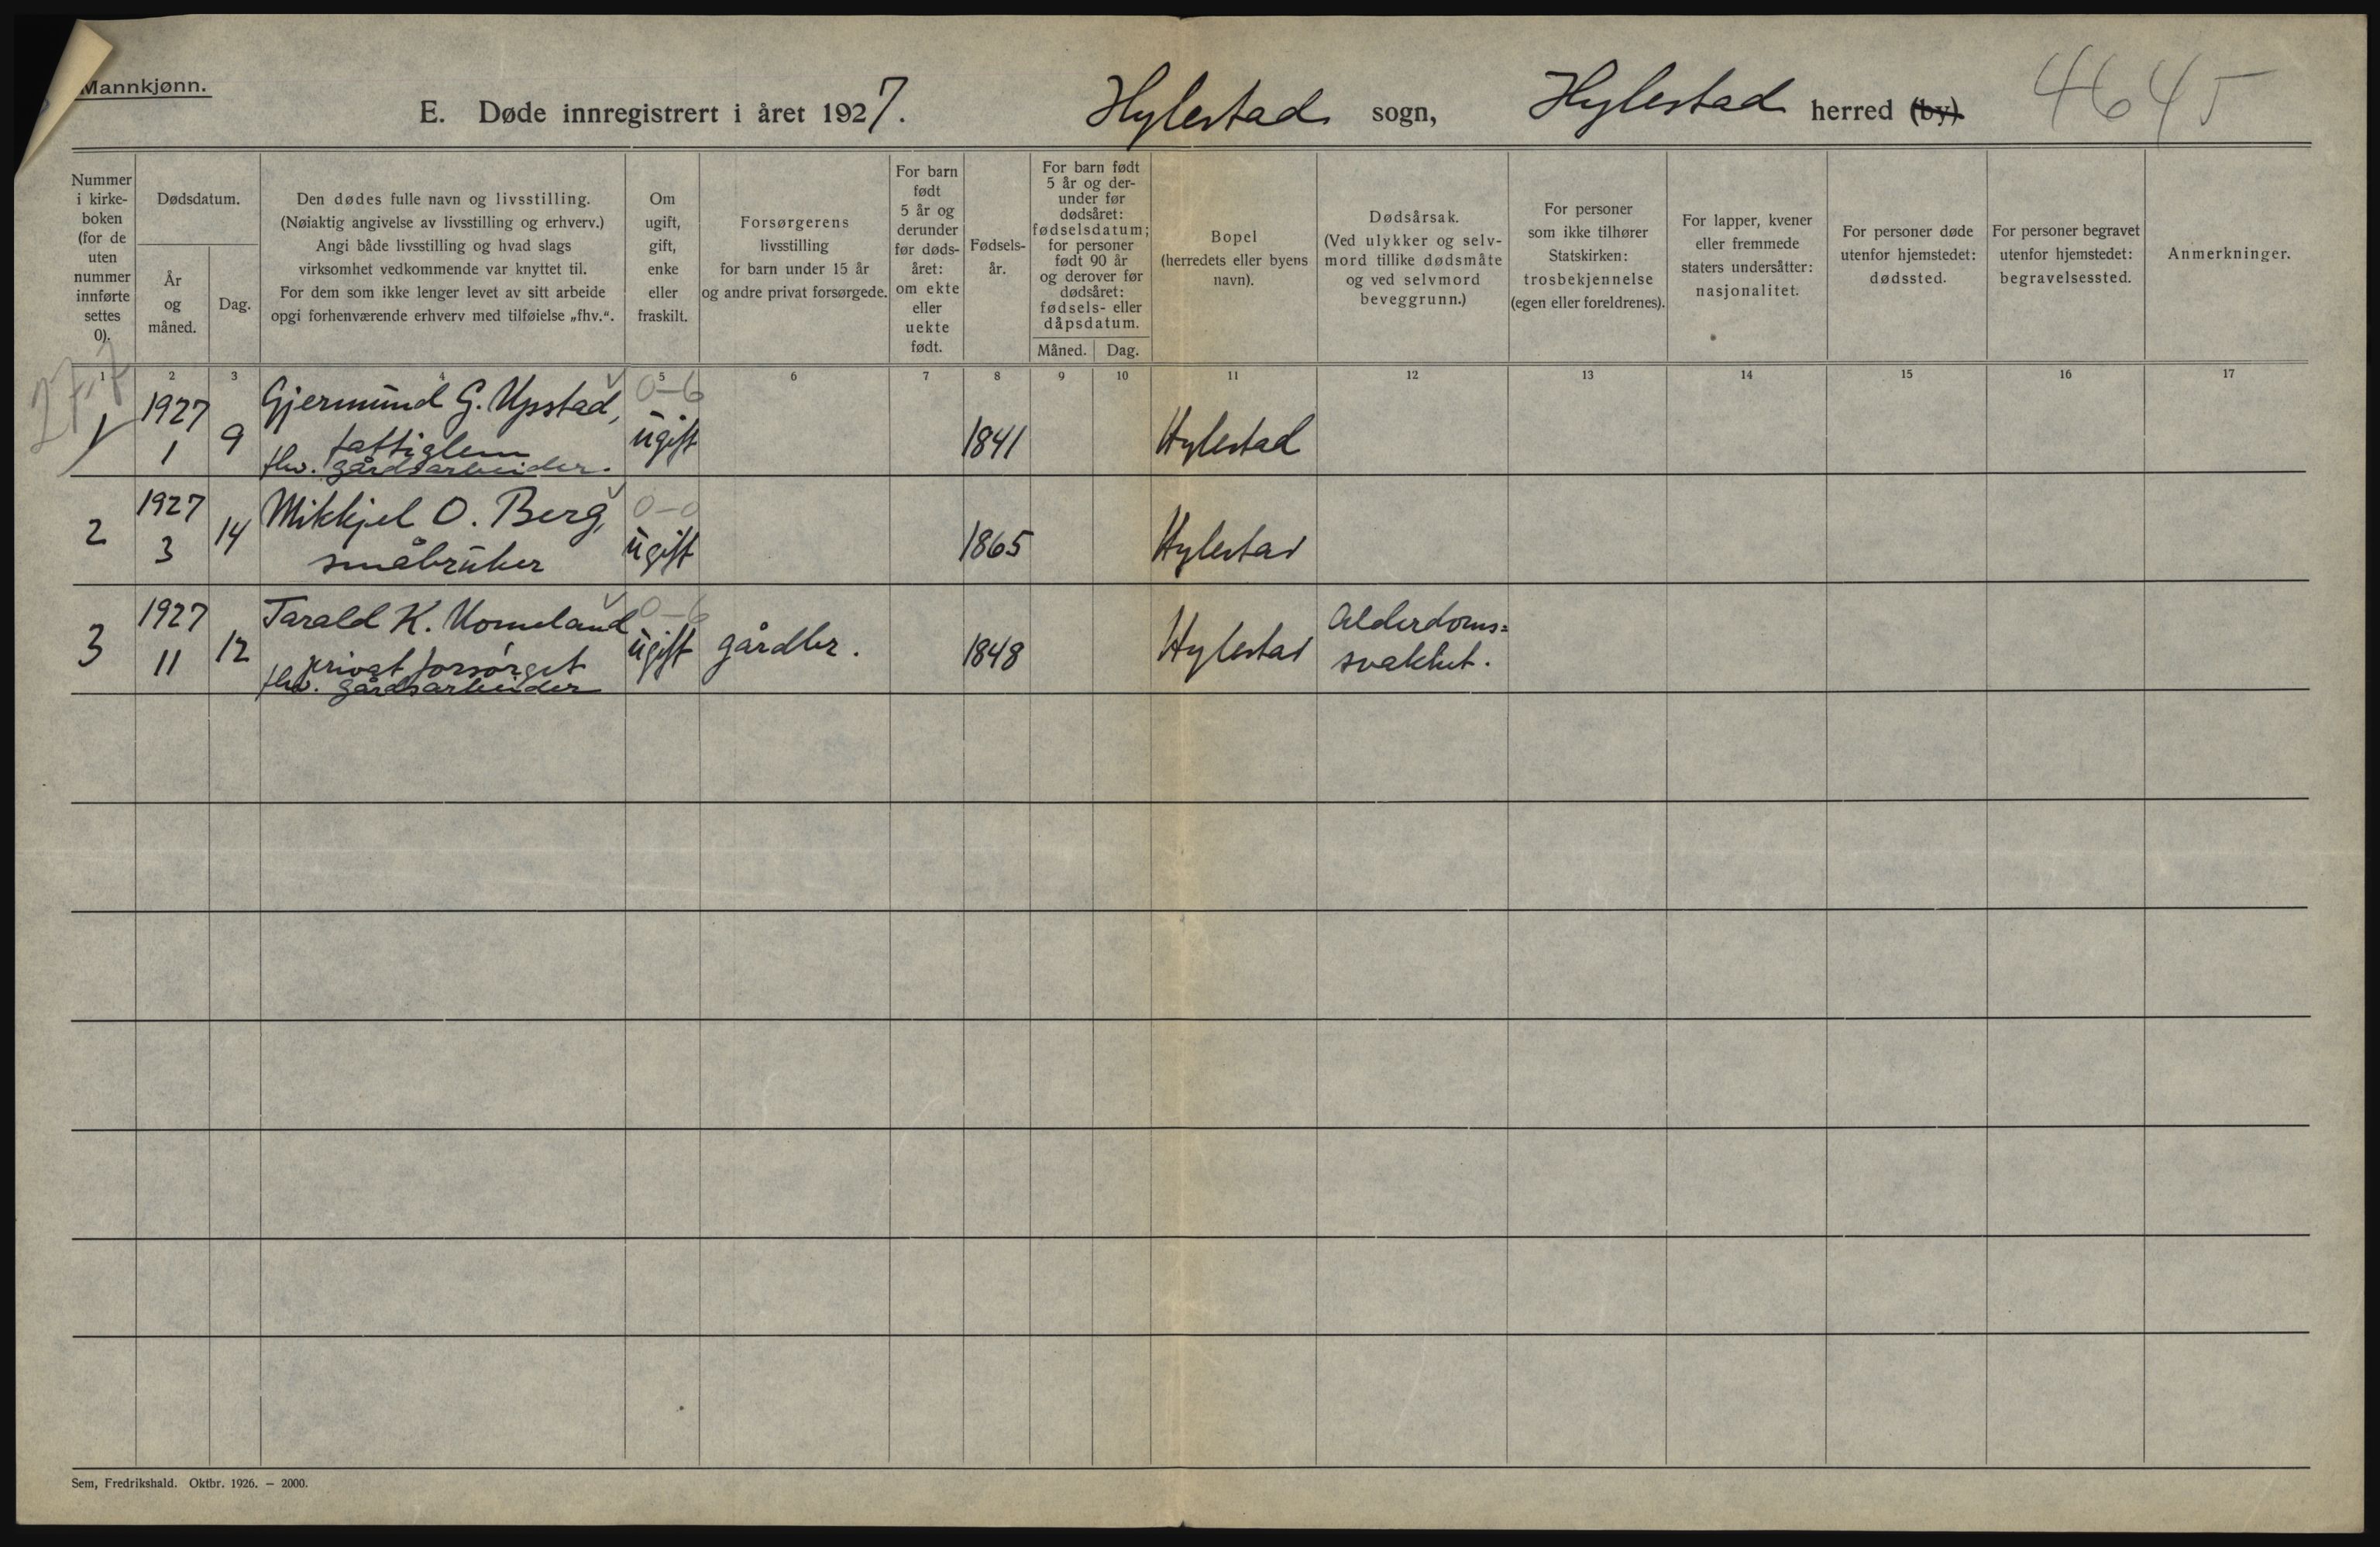 Mannkjønn.
E. Døde innregistrert i året 1927. Hylestad sogn, Hylestad herred (by). 4645
Nummer i kirke- boken (for de uten nummer innførte settes 0).
Dødsdatum.
År og måned.
Dag.
Den dødes fulle navn og livsstilling.
(Nøiaktig angivelse av livsstilling og erhverv.)
Angi både livsstilling og hvad slags
virksomhet vedkommende var knyttet til.
For dem som ikke lenger levet av sitt arbeide
opgi forhenværende erhverv med tilføielse „fhv.“.
Om ugift, gift, enke eller fraskilt.
Forsørgerens
livsstilling
for barn under 15 år
og andre privat forsørgede.
For barn født 5 år og derunder før døds- året: om ekte eller uekte født.
Fødsels- år.
For barn født 5 år og der- under før dødsåret: fødselsdatum; for personer født 90 år og derover før dødsåret: fødsels- eller dåpsdatum.
Måned.
Dag.
Bopel
(herredets eller byens
navn).
Dødsårsak.
(Ved ulykker og selv-
mord tillike dødsmåte
og ved selvmord
beveggrunn.)
For personer
som ikke tilhører
Statskirken:
trosbekjennelse
(egen eller foreldrenes).
For lapper, kvener
eller fremmede
staters undersåtter:
nasjonalitet.
For personer døde
utenfor hjemstedet:
dødssted.
For personer begravet
utenfor hjemstedet:
begravelsessted.
Anmerkninger.
1 2 3 4 5 6 7 8 9 10 11 12 13 14 15 16 17
27.7
1 1927 1 9 Gjermund G. Upstad, 0-6 ugift 1841 Hylestad
fattiglem
fhv. gårdsarbeider.
2 1927 3 14 Mikkjel O. Berg, 0-0 ugift 1865 Hylestad
småbruker
3 1927 11 12 Tarald K. Homeland 0-6 ugift gårdbr. 1848 Hylestad Alderdoms=
svakhet.
privat forsørget
fhv. gårdsarbeider
Sem, Fredrikshald. Oktbr. 1926. — 2000.